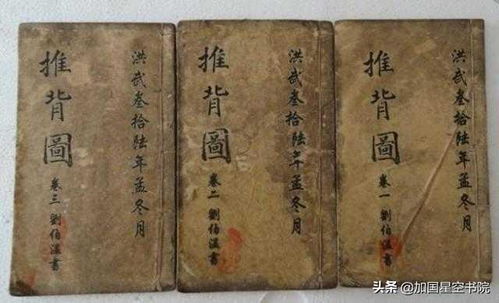 洪武叁拾陸年孟冬月
推背圖
卷一 劉伯溫書
洪武叁拾陸年孟冬月
推背圖
卷二 劉伯溫書
洪武叁拾陸年孟冬月
推背圖
卷三 劉伯溫書
头条 @加国星空书院